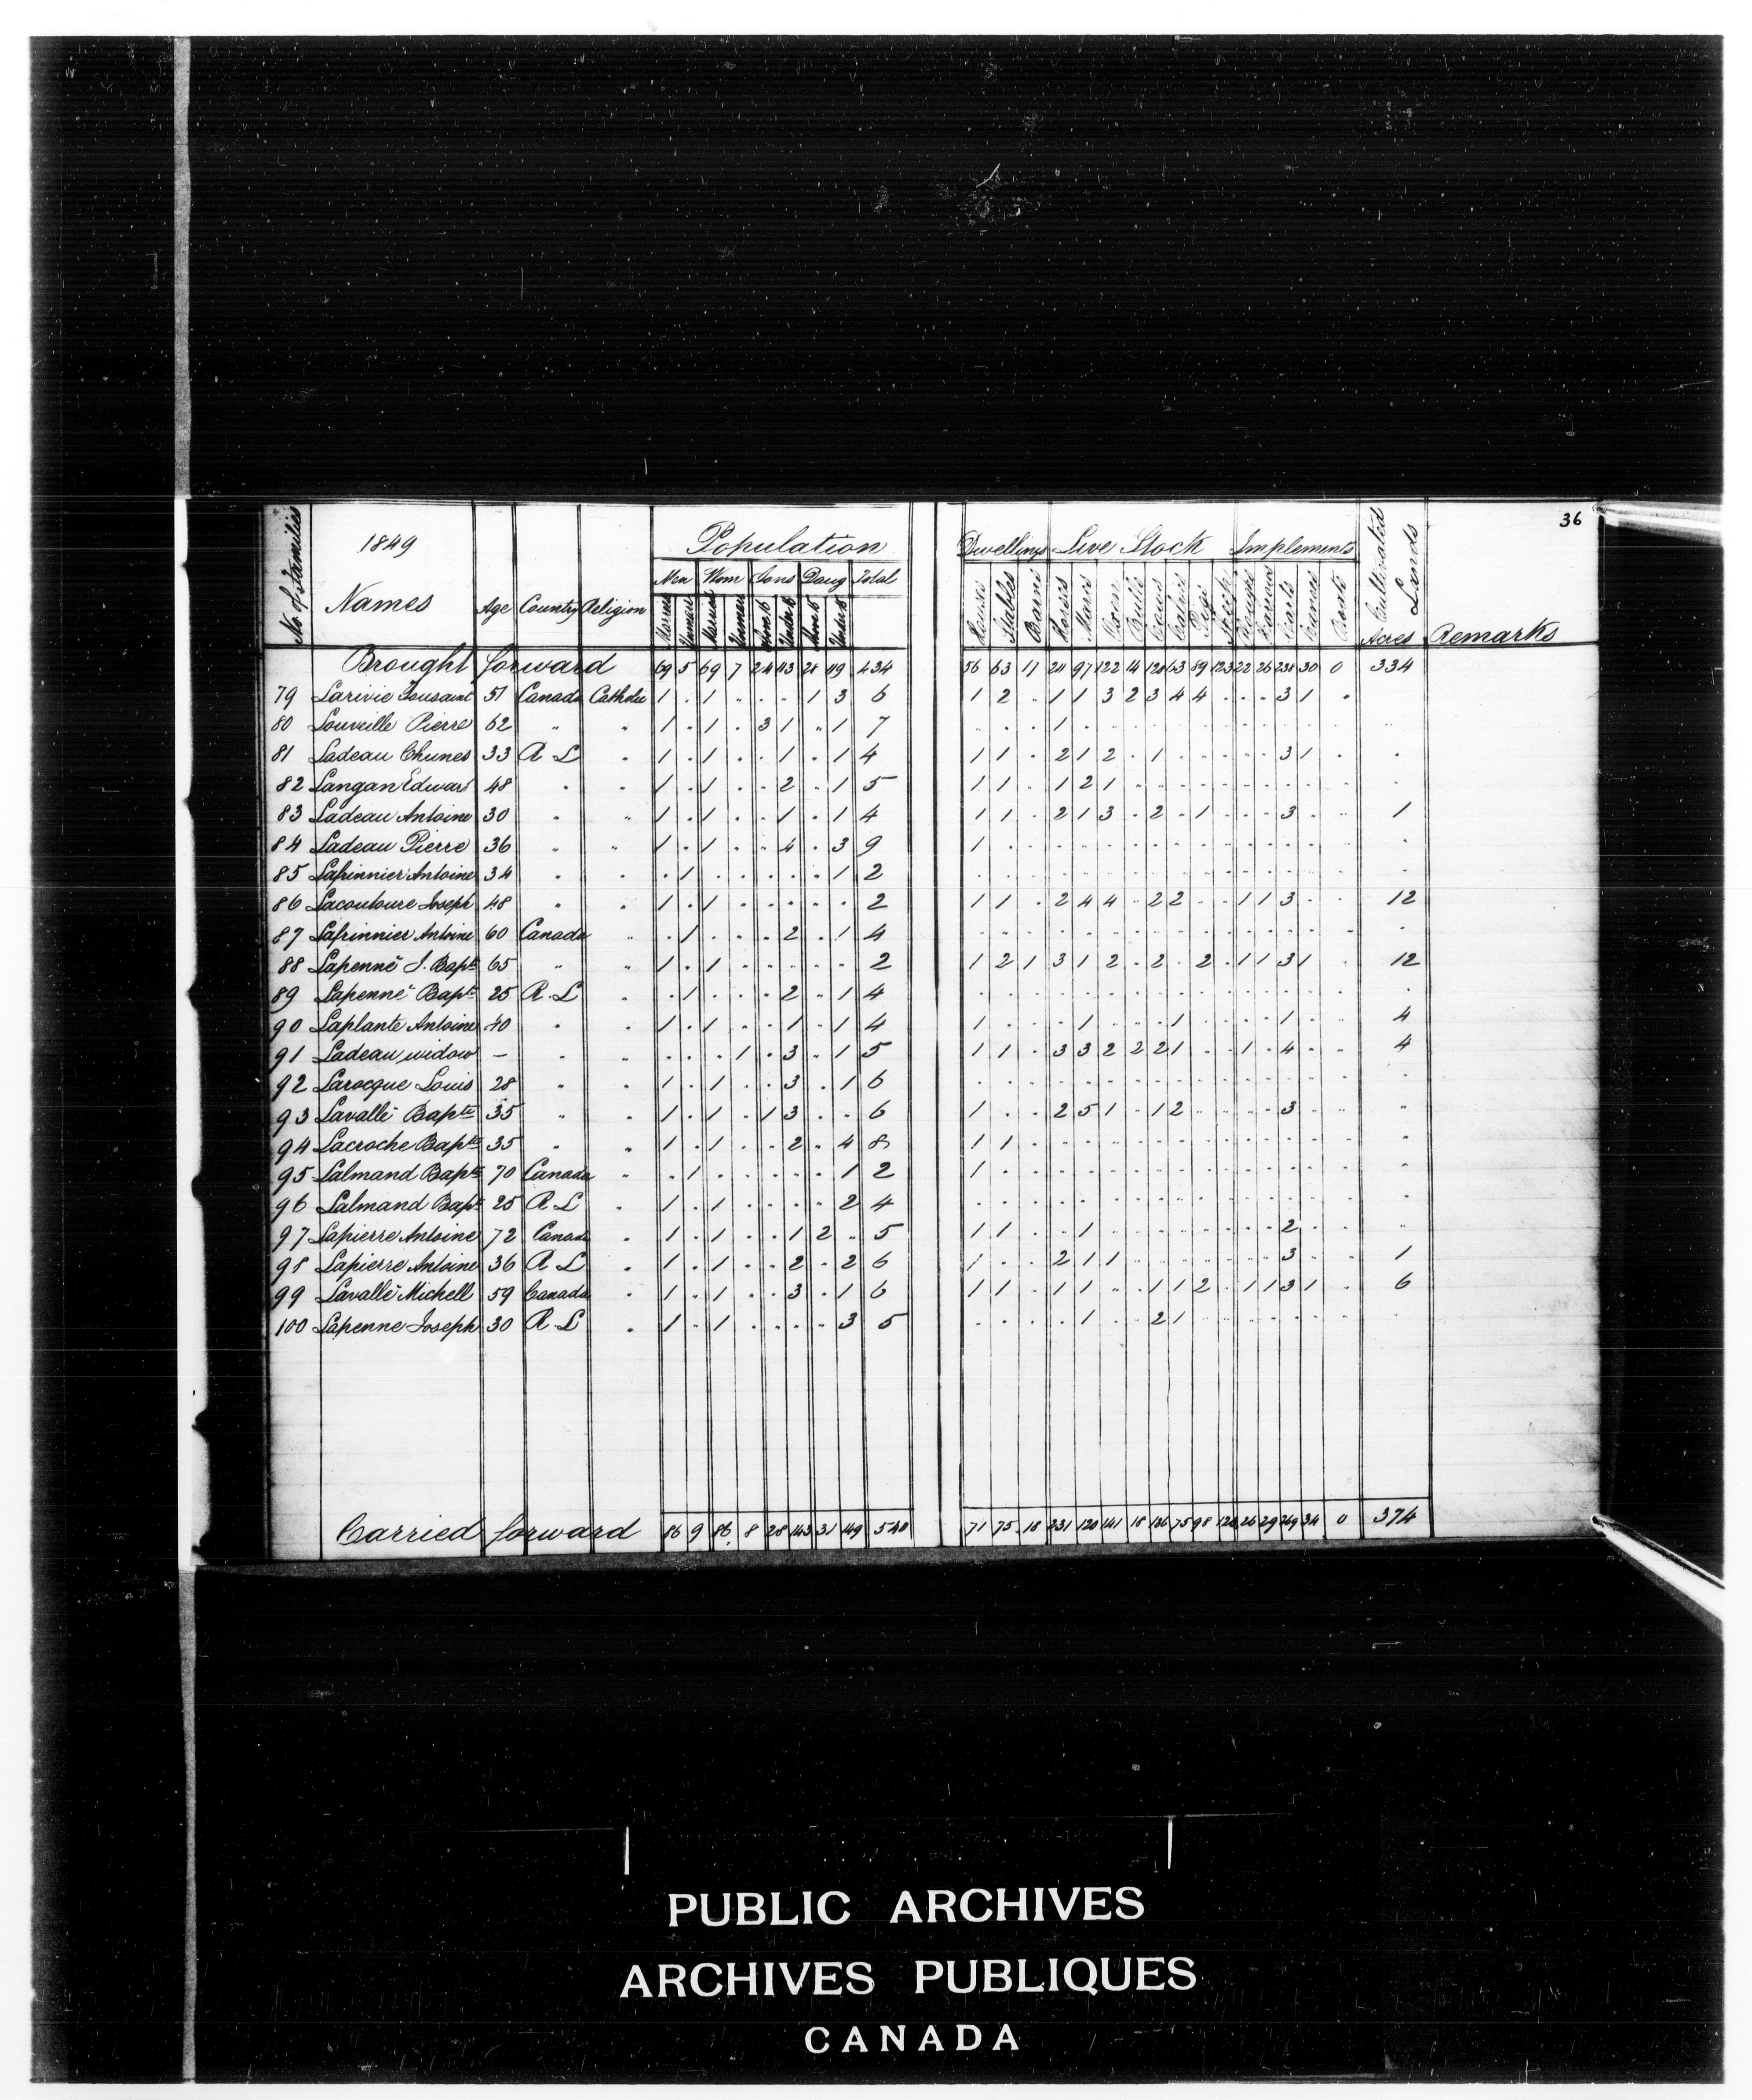 36
No of Families 1849 Population Dwellings Live Stock Implements Cultivated Lands
Men Wom Sons Daug Total
Names Age Country Religion Married Married Above 16 Under 16 Above 15 Under 15 Houses Stables Barns Horses Mares Oxen Bulls Cows Calves Pigs Sheep Ploughs Harrows Carts Canoes Boats Acres Remarks
Brought forward 69 5 69 7 24 113 28 119 434 56 63 17 211 97 122 14 63 89 123 22 26 30 0 334
79 Larivie Tousaint 51 Canada Catholic 1 . 1 . . . 1 3 6 1 2 . 1 1 3 2 3 4 4 . . . 3 1 .
80 Louveille Pierre 62 " " 1 . 1 . 3 1 . 1 7 . . . 1 . . . . . . . . . . . . .
81 Ladeau Chunes 33 R L " 1 . 1 . . 1 . 1 4 1 1 . 2 1 2 . 1 . . . . . 3 1 . .
82 Langan Edwar 48 " " 1 . 1 . . 2 . 1 5 1 1 . 1 2 1 . . . . . . . . . . .
83 Ladeau Antoine 30 " " 1 . 1 . . 1 . 1 4 1 1 . 2 1 3 . 2 . 1 . . . 3 . . 1
84 Ladeau Pierre 36 " " 1 . 1 . . 4 . 3 9 1 . . . . . . . . . . . . . . . .
85 Lafrinnier Antoine 34 " " . 1 . . . . . 1 2 . . . . . . . . . . . . . . . . .
86 Lacouloure Joseph 48 " " 1 . 1 . . . . . 2 1 1 . 2 4 4 . 2 2 . . 1 1 3 . . 12
87 Lafrinnier Antoine 60 Canada " . 1 . . . 2 . 1 4 . . . . . . . . . . . . . . . . .
88 Lapenné J. Bapte 65 " " 1 . 1 . . . . . 2 1 2 1 3 1 2 . 2 . 2 . 1 1 3 1 . 12
89 Lapenné Bapte 25 R. L " . 1 . . . 2 . 1 4 . . . . . . . . . . . . . . . . .
90 Laplante Antoine 40 " " 1 . 1 . . 1 . 1 4 1 . . . 1 . . . 1 . . . . 1 . . 4
91 Ladeau widow – " " . . . 1 . 3 . 1 5 1 1 . 3 3 2 2 2 1 . . 1 . 4 . . 4
92 Larocque Louis 28 " " 1 . 1 . . 3 . 1 6 . . . . . . . . . . . . . . . . .
93 Lavallé Bapte 35 " " 1 . 1 . 1 3 . . 6 1 . . 2 5 1 . 1 2 . . . . 3 . . .
94 Lacroche Bapte 35 " " 1 . 1 . . 2 . 4 8 1 1 . . . . . . . . . . . . . . .
95 Lalmand Bapte 70 Canada " . 1 . . . . . 1 2 1 . . . . . . . . . . . . . . . .
96 Lalmand Bapt 25 R L " 1 . 1 . . . . 2 4 . . . . . . . . . . . . . . . . .
97 Lapierre Antoine 72 Canada " 1 . 1 . . 1 2 . 5 1 1 . . 1 . . . . . . . . 2 . . .
98 Lapierre Antoine 36 R L " 1 . 1 . . 2 . 2 6 1 . . 2 1 1 . . . . . . . 3 . . 1
99 Lavallé Michell 59 Canada " 1 . 1 . . 3 . 1 6 1 1 . 1 1 . . 1 1 2 . 1 1 3 1 . 6
100 Lapenne Joseph 30 R L " 1 . 1 . . . . 3 5 . . . . 1 . . 2 1 . . . . . . . .
Carried forward 86 9 86 8 28 143 31 149 540 71 75 18 231 120 141 18 136 75 98 26 29 269 34 0 374
PUBLIC ARCHIVES
ARCHIVES PUBLIQUES
CANADA